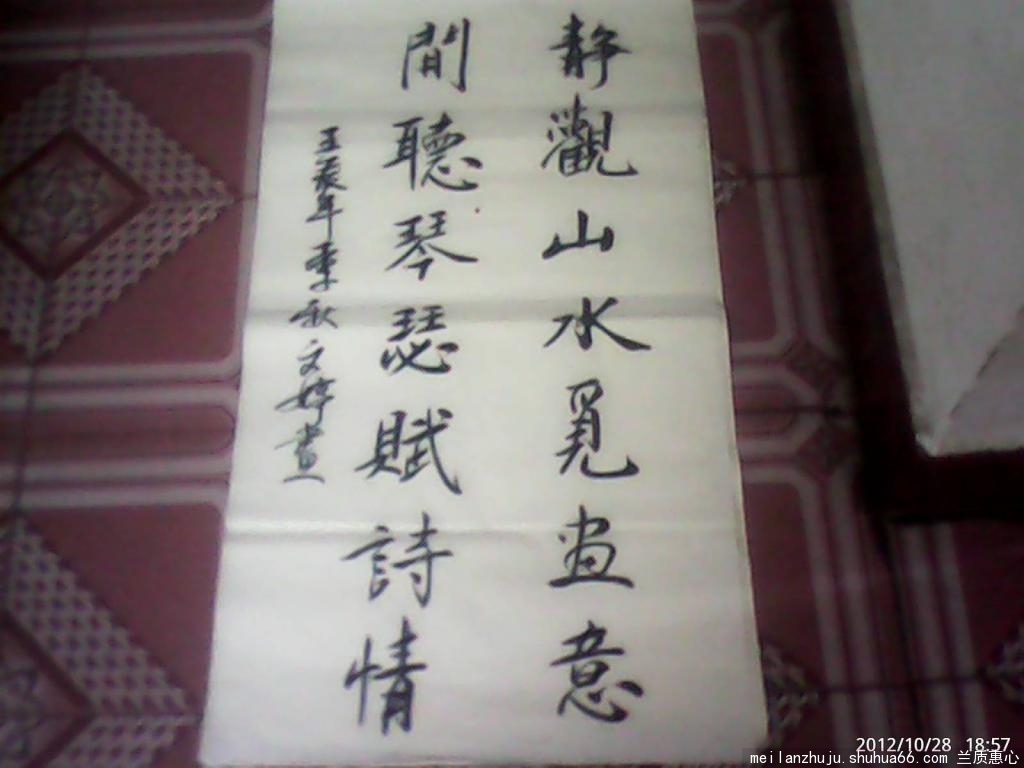 静觀山水覓画意
間聽琴瑟賦詩情
壬辰年季秋文婷書
2012/10/28 18:57
meilanzhuju.shuhua66.com 兰质惠心